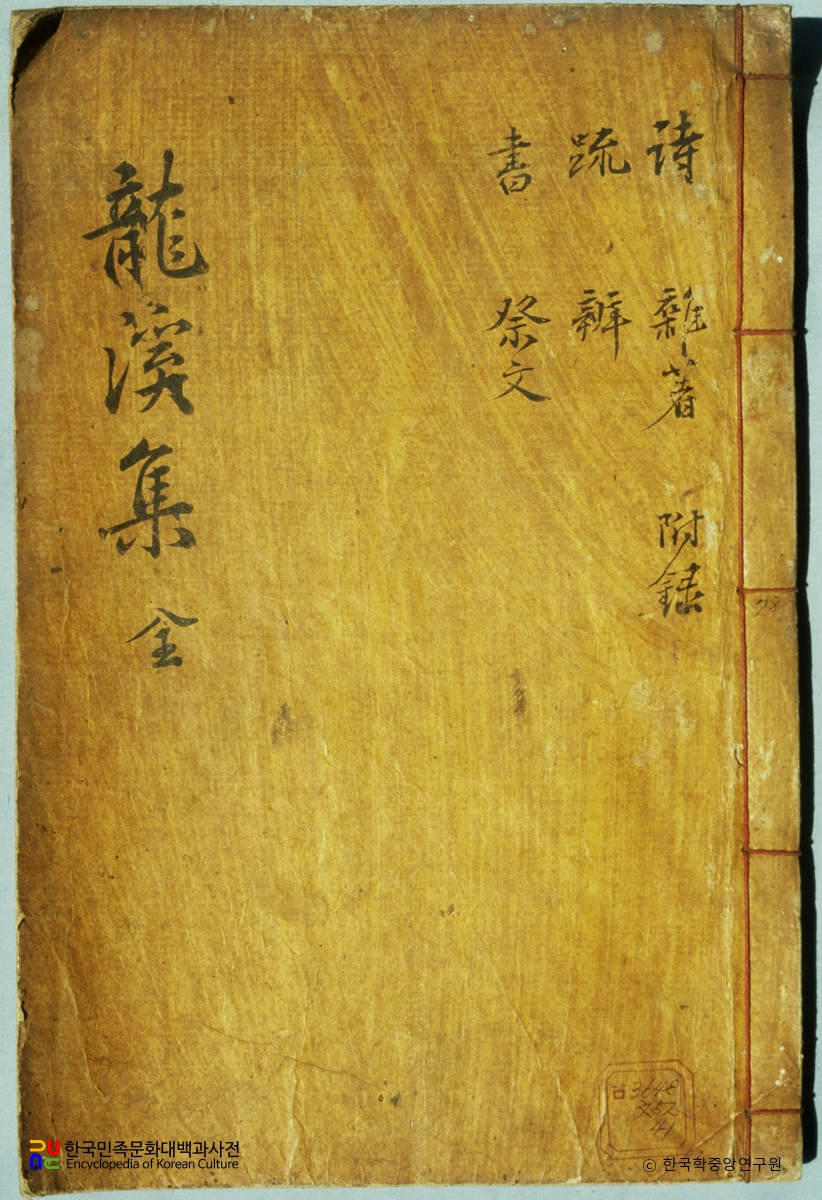 詩 雜著 附錄
疏 辨
書 祭文
龍溪集 全
한국민족문화대백과사전
Encyclopedia of Korean Culture
© 한국학중앙연구원